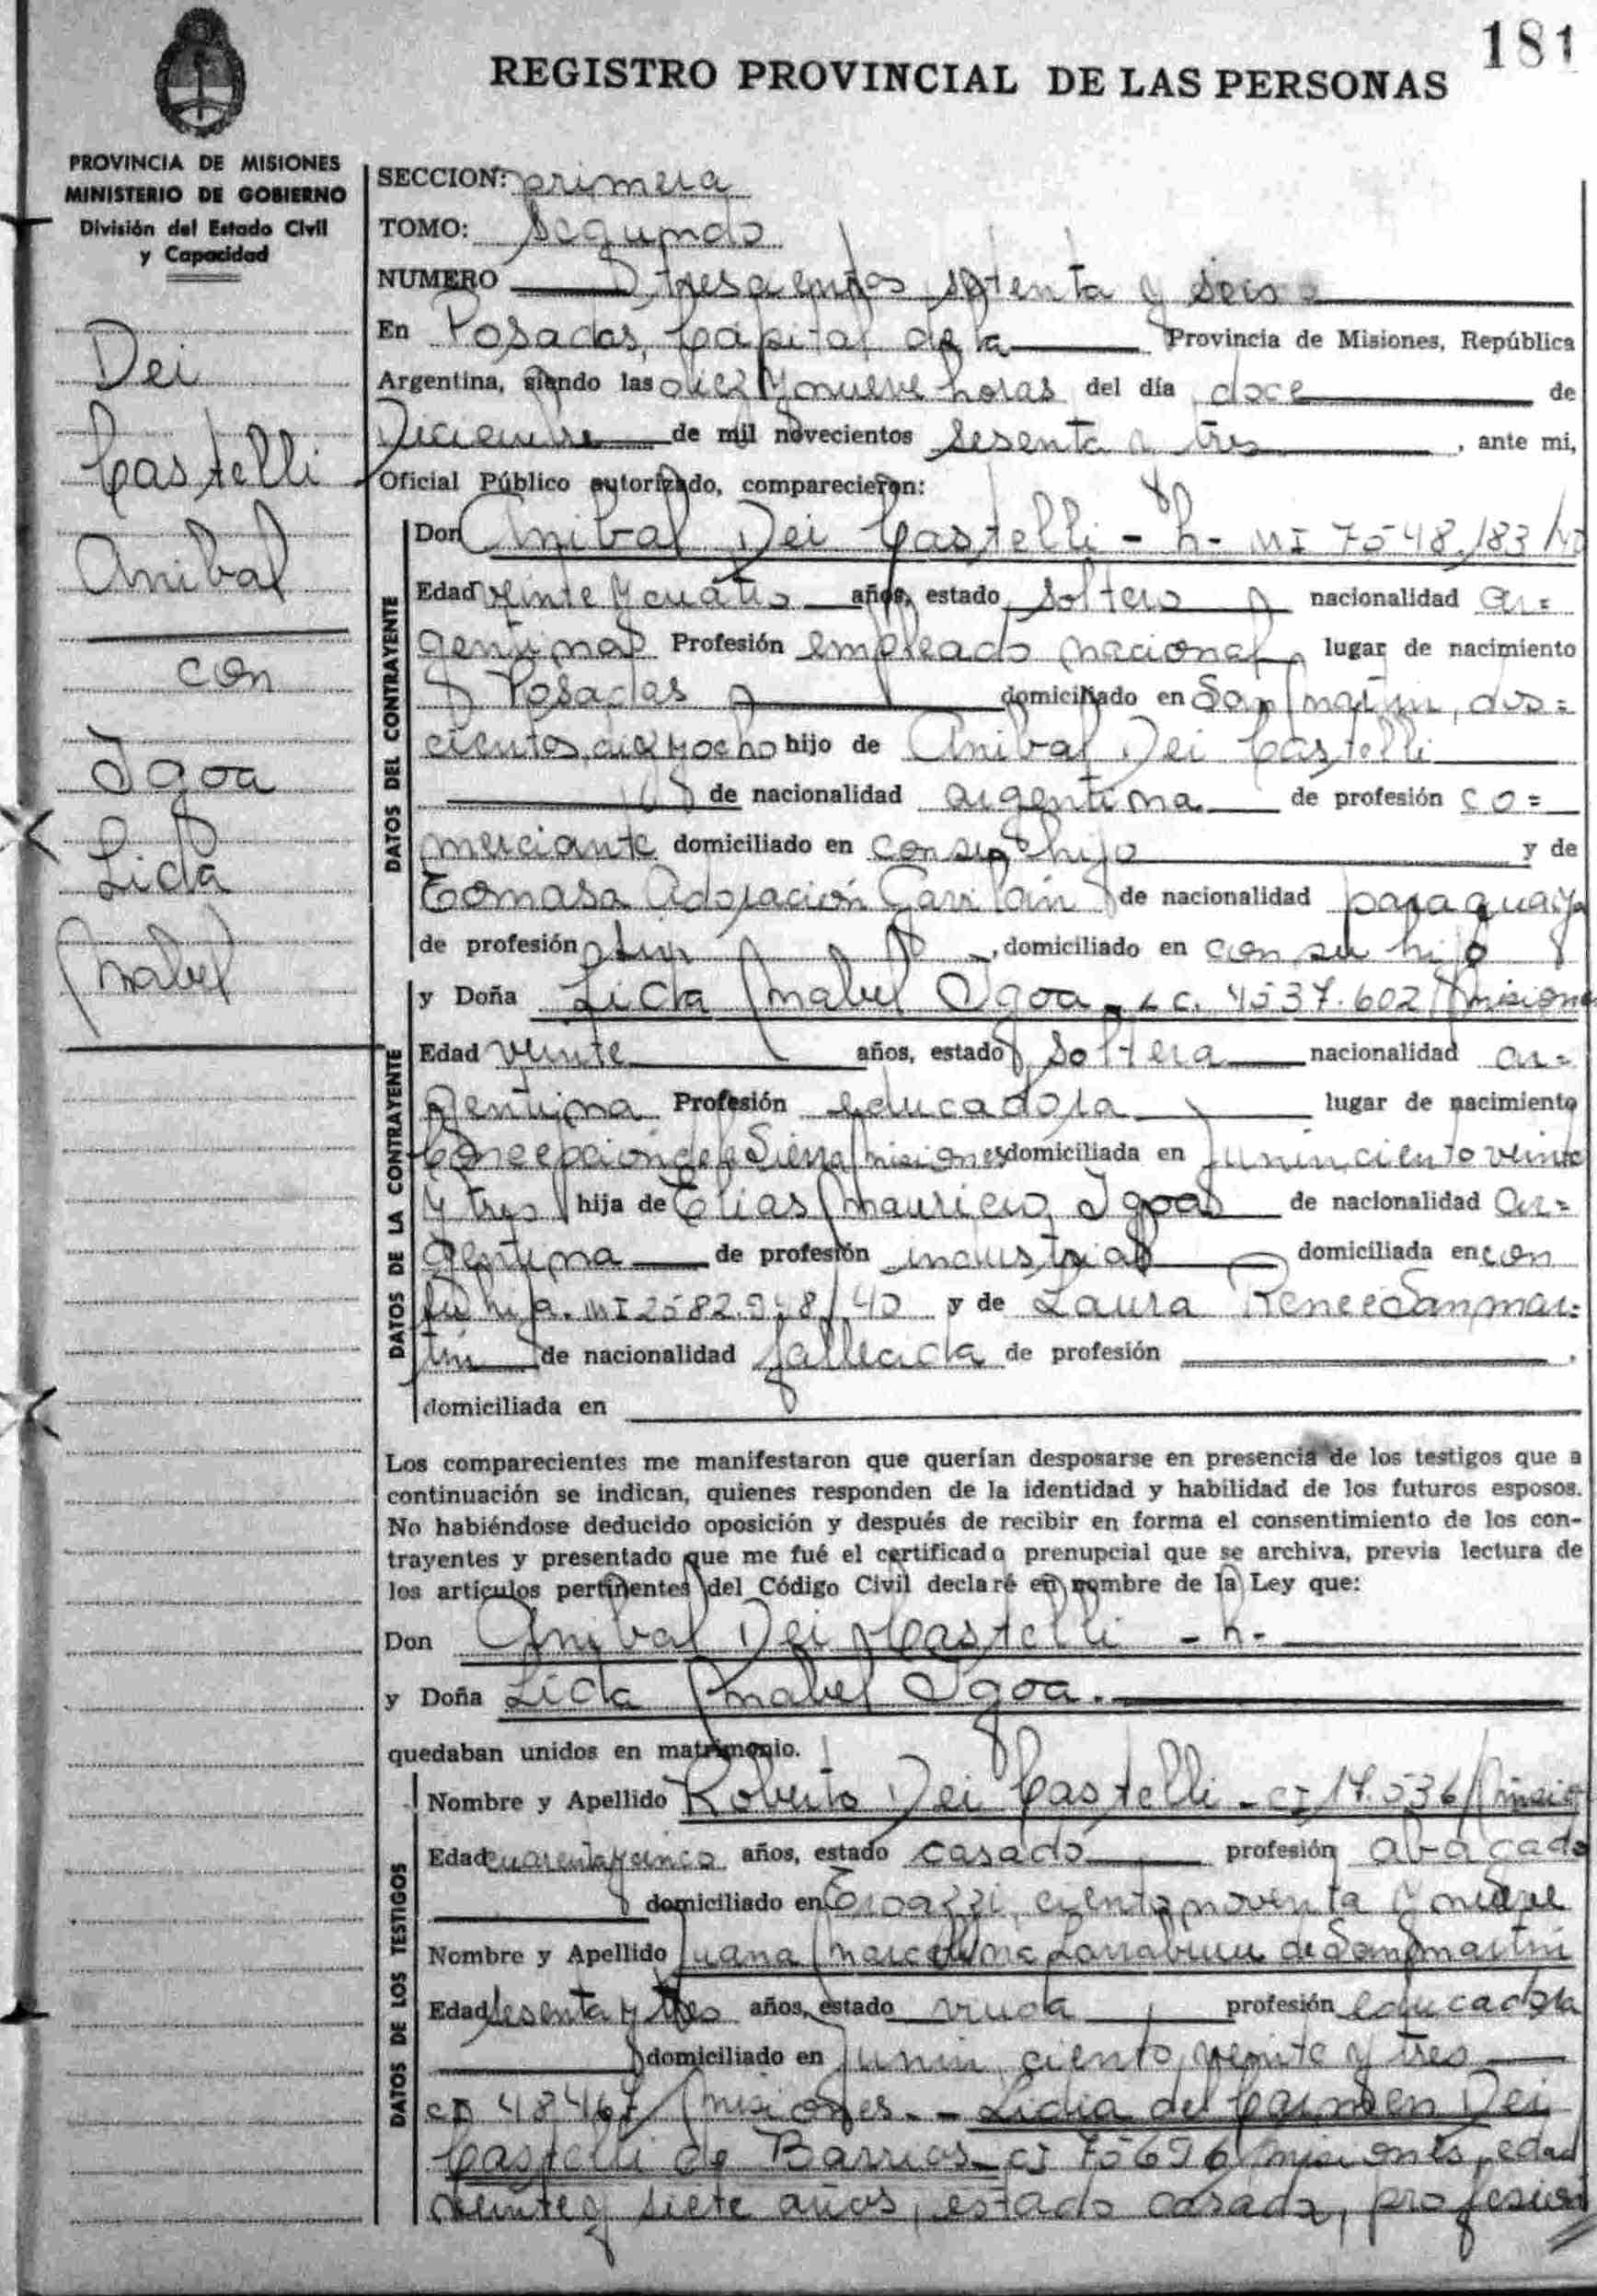 181
REGISTRO PROVINCIAL DE LAS PERSONAS
PROVINCIA DE MISIONES
MINISTERIO DE GOBIERNO
División del Estado Civil
y Capacidad
Dei
Castelli
Anibal
con
Igoa
Lida
Mabel
SECCION: primera
TOMO: Segundo
NUMERO trescientos setenta y seis
En Posadas, Capital de la Provincia de Misiones, República
Argentina, siendo las diez y nueve horas del día doce de
Diciembre de mil novecientos sesenta y tres, ante mi,
Oficial Público autorizado, comparecieron:
DATOS DEL CONTRAYENTE
Don Anibal Dei Castelli - h - MI 7548.183
Edad veinte y cuatro años, estado soltero nacionalidad ar=
gentina Profesión empleado nacional lugar de nacimiento
Posadas domiciliado en San Martin, dos=
cientos diez y ocho hijo de Anibal Dei Castelli
de nacionalidad argentina de profesión co=
merciante domiciliado en con su hijo y de
Tomasa Adoración Gavilán de nacionalidad paraguaya
de profesión domiciliado en con su hijo
DATOS DE LA CONTRAYENTE
y Doña Lida Mabel Igoa - LC. 4537.602 Misiones
Edad veinte años, estado soltera nacionalidad ar=
gentina Profesión educadora lugar de nacimiento
Concepción de la Sierra Misiones domiciliada en Junin ciento veinte
y tres hija de Elias Mauricio Igoa de nacionalidad Ar=
gentina de profesión industrial domiciliada en con
su hija. MI 2582.948/40 y de Laura Renee Sanmar=
tin de nacionalidad fallecida de profesión
domiciliada en
Los comparecientes me manifestaron que querían desposarse en presencia de los testigos que a
continuación se indican, quienes responden de la identidad y habilidad de los futuros esposos.
No habiéndose deducido oposición y después de recibir en forma el consentimiento de los con-
trayentes y presentado que me fué el certificado prenupcial que se archiva, previa lectura de
los artículos pertinentes del Código Civil declaré en nombre de la Ley que:
Don Anibal Dei Castelli - h -
y Doña Lida Mabel Igoa.
quedaban unidos en matrimonio.
DATOS DE LOS TESTIGOS
Nombre y Apellido Roberto Dei Castelli - CI 17.536
Edad cuarenta y cinco años, estado casado profesión abogado
domiciliado en ciento noventa y nueve
Nombre y Apellido Juana Marcelina Larraburu de Sanmartin
Edad sesenta y tres años, estado viuda profesión educadora
domiciliado en Junin ciento veinte y tres
CI 48467 Misiones - Lidia del Carmen Dei
Castelli de Barrios - CI 75696 Misiones, edad
veinte y siete años, estado casada, profesión